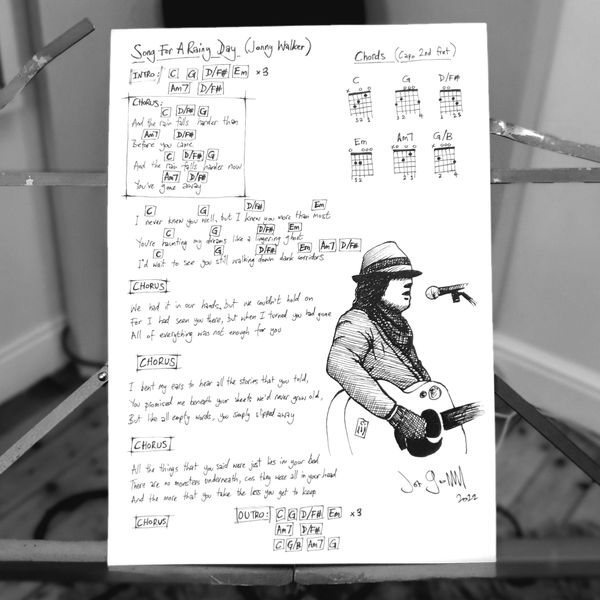 Song For A Rainy Day (Jonny Walker)
INTRO: C G D/F# Em x3
Am7 D/F#
CHORUS:
C D/F# G
And the rain falls harder than
Am7 D/F#
Before you came
C D/F# G
And the rain falls harder now
Am7 D/F#
You've gone away
C G D/F# Em
I never knew you well, but I knew you more than most
C G D/F# Em
You're haunting my dreams like a lingering ghost
C G D/F# Em Am7 D/F#
I'd wait to see you still walking down dark corridors
CHORUS
We had it in our hands, but we couldn't hold on
For I had seen you there, but when I turned you had gone
All of everything was not enough for you
CHORUS
I bent my ears to hear all the stories that you told,
You promised me beneath your sheets we'd never grow old,
But like all empty words, you simply slipped away
CHORUS
All the things that you said were just lies in your bed
There are no monsters underneath, cos they were all in your head
And the more that you take the less you get to keep
CHORUS
OUTRO: C G D/F# Em x3
Am7 D/F#
C G/B Am7 G
Chords (Capo 2nd fret)
C G D/F#
Em Am7 G/B
2022